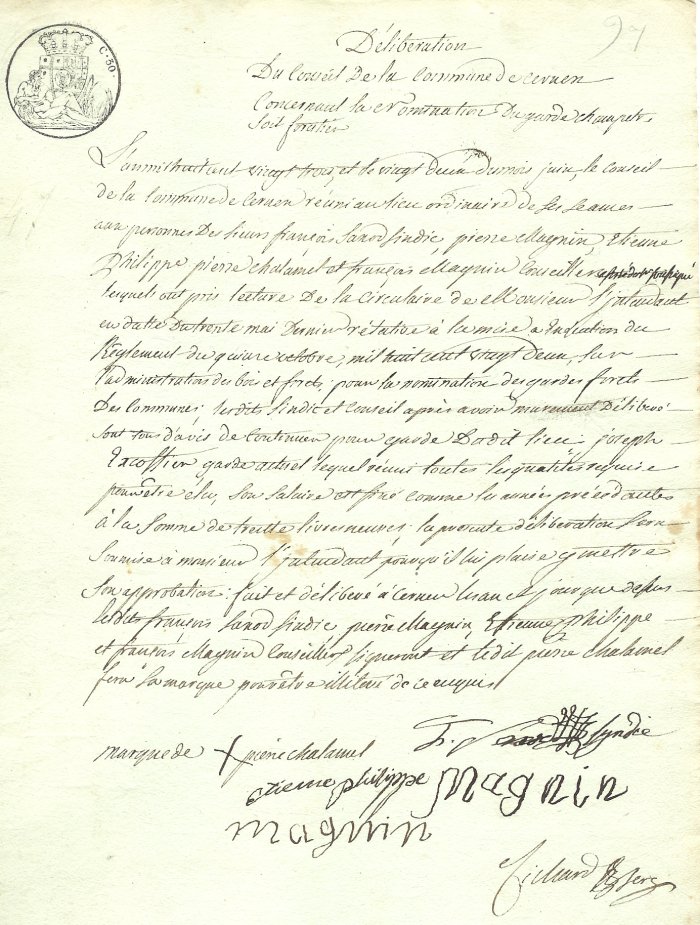 97
C. 50.
Déliberation
Du Conseil De la Commune de cernen
Concernant la Nomination Du garde champetre
soit forêtier
L'an mil huit cent vingt trois, et le vingt deux du mois juin, le Conseil
de la Commune de Cernen réuni au lieu ordinaire de ses séances
aux personnes Des sieurs françois Sanod sindic, pierre Magnin, Etienne
Philippe pierre chalamel et françois Magnin Conseillers
lesquels ont pris lecture De la Circulaire de Monsieur l'jntendant
en datte Du trente mai Dernier rélative à la mise a Exécution du
Réglement du quinze octobre, mil huit cent vingt deux, sur
l'administration des bois et forets; pour la nomination des gardes forets
Des Communes; lesdits sindic et Conseil après avoir murement Délibéré
sont tous d'avis de Continuer pour garde Dudit lieu joseph
Excoffier garde actuel lequel réuni toutes les qualités requise
pour être élu, son salaire est fixé comme les années précédantes
à la somme de treitte livres neuves: la présente déliberation sera
soumise à monsieur l'jntendant pour qu'il lui plaise y mettre
son approbation: fait et délibéré à Cernen l'an et jour que dessus
ledit françois Sanod sindic, pierre Magnin, Etienne philippe
et françois Magnin Conseillers signeront et ledit pierre chalamel
fera sa marque pour être illiteré de ce enquis
marque de + pierre chalamel
syndic
etienne philippe Magnin
magnin